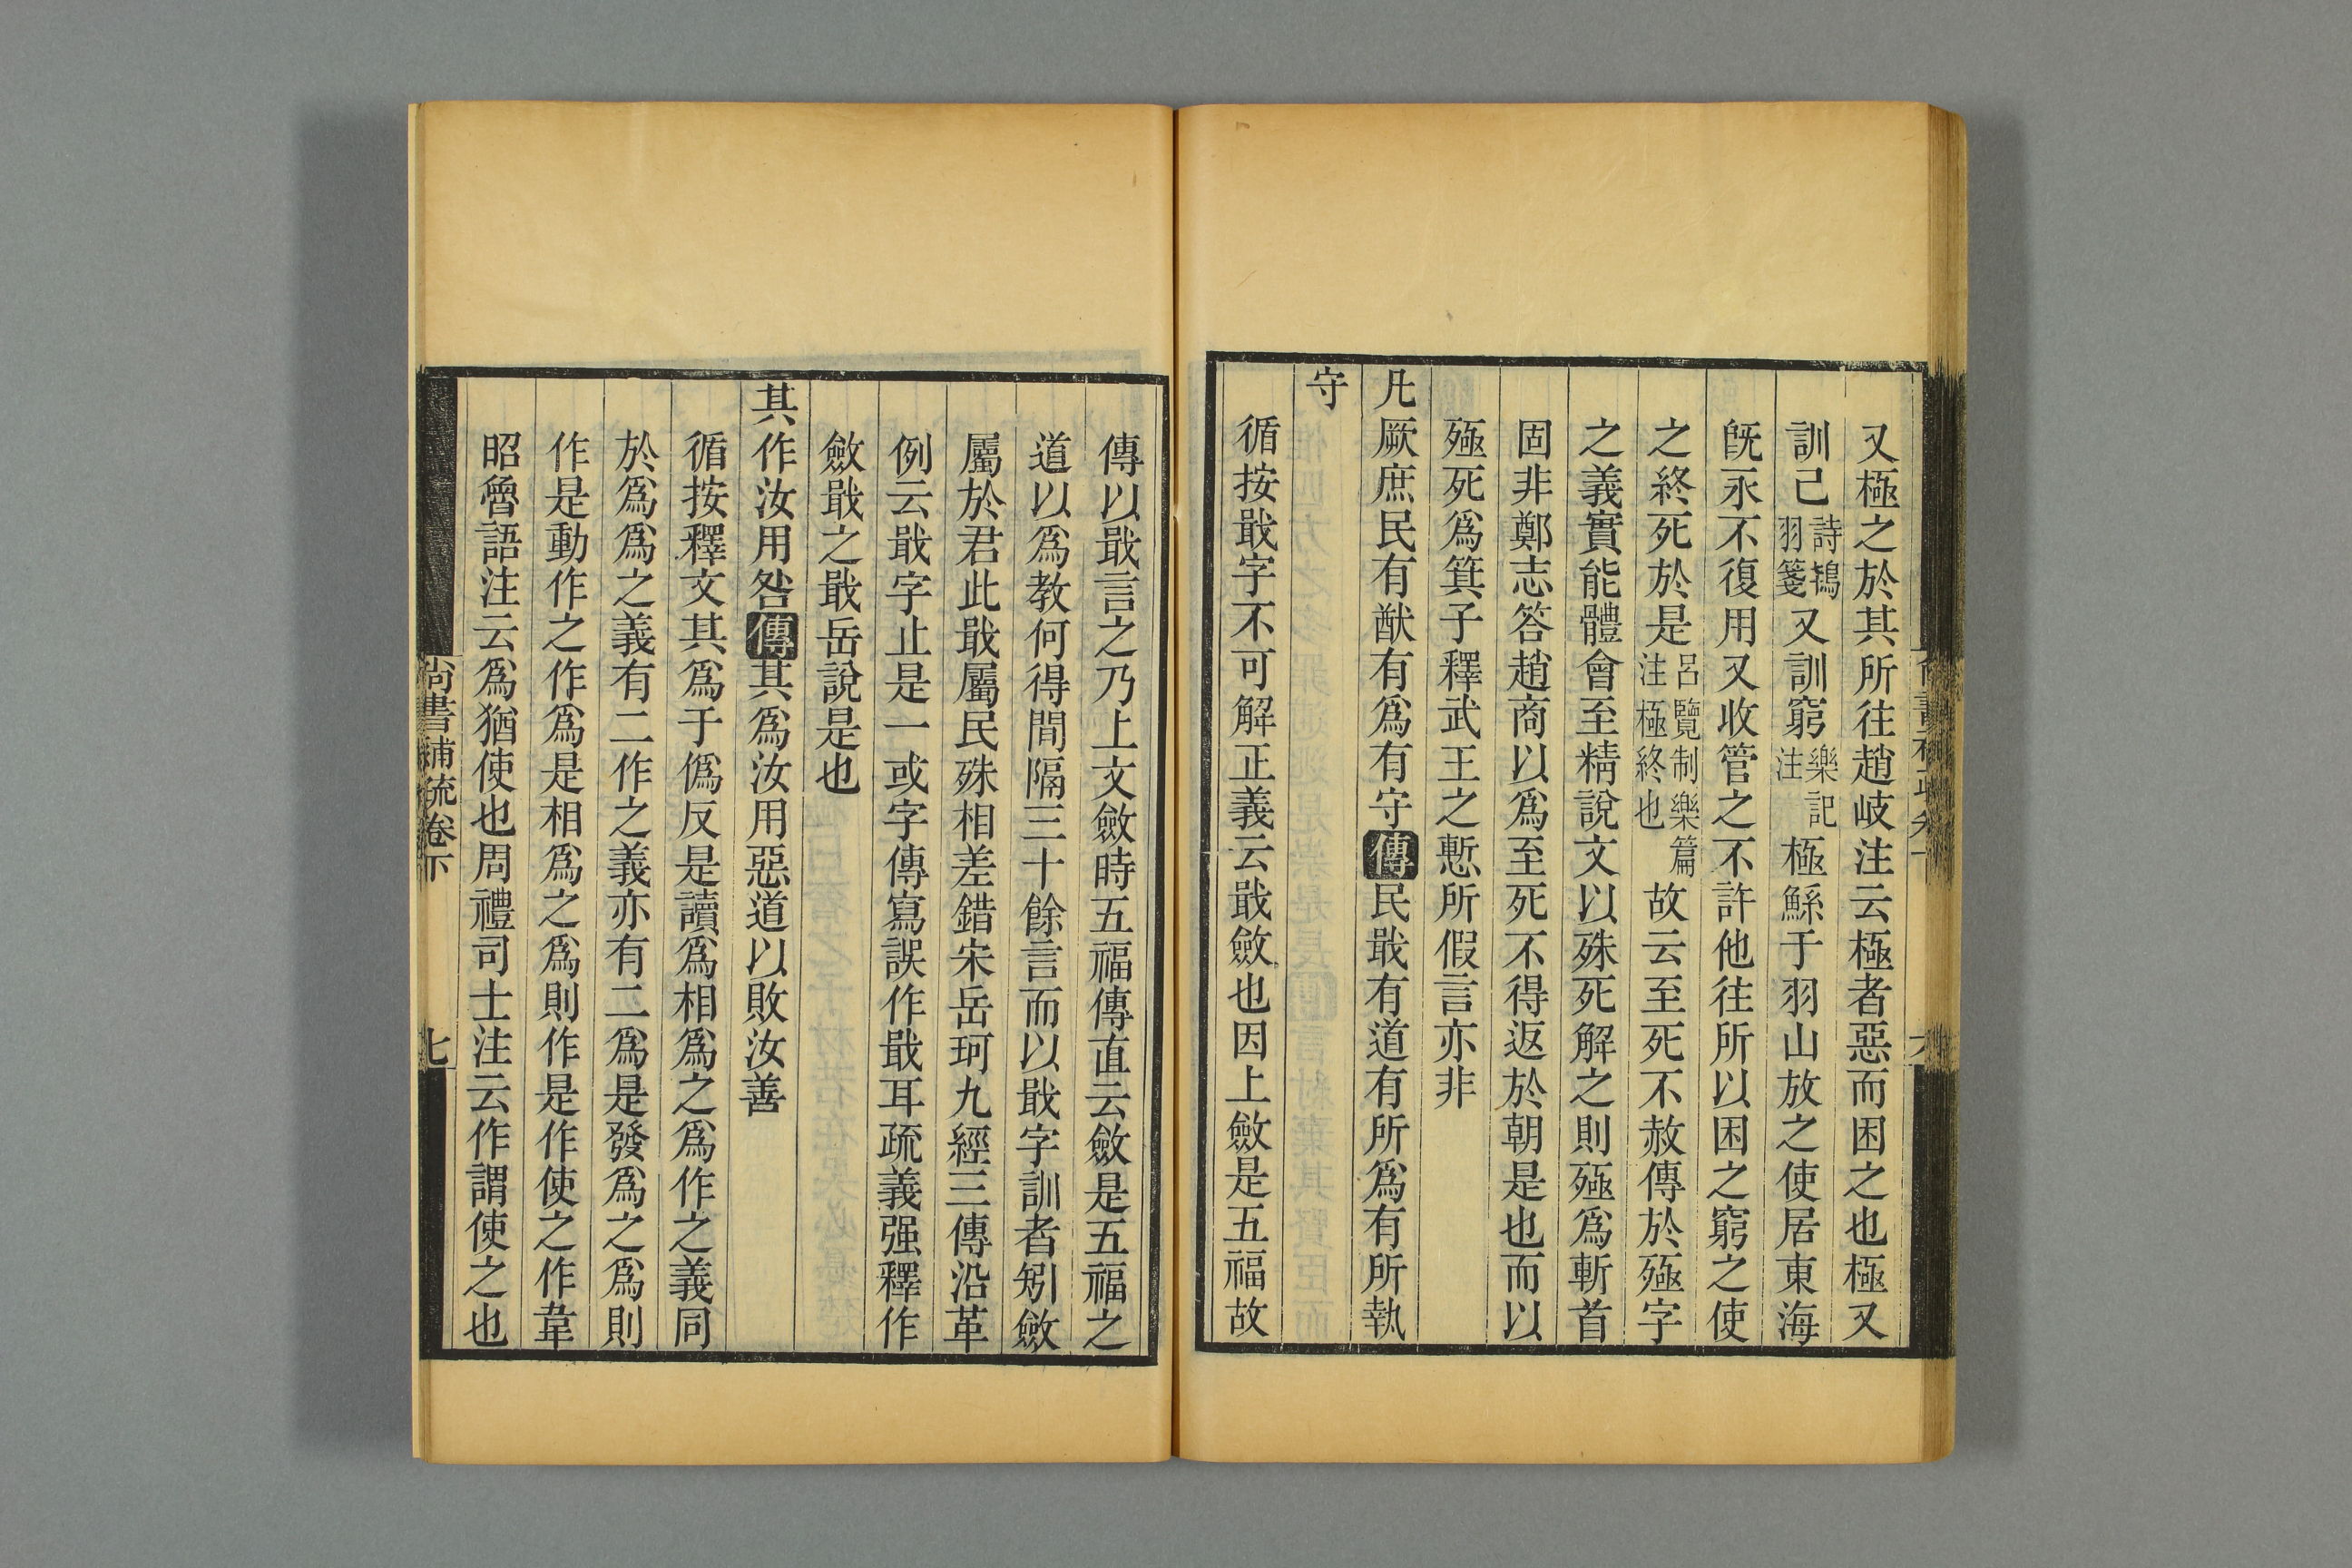 又極之於其所往趙岐注云極者惡而困之也極又
訓己詩鴇羽箋又訓窮樂記注極鯀于羽山放之使居東海
旣永不復用又收管之不許他往所以困之窮之使
之終死於是呂覽制樂篇注極終也故云至死不赦傳於殛字
之義實能體會至精說文以殊死解之則殛爲斬首
固非鄭志答趙商以爲至死不得返於朝是也而以
殛死爲箕子釋武王之慙所假言亦非
凡厥庶民有猷有爲有守傳民戢有道有所爲有所執
守
循按戢字不可解正義云戢斂也因上斂是五福故
傳以戢言之乃上文斂時五福傳直云斂是五福之
道以爲教何得間隔三十餘言而以戢字訓者矧斂
屬於君此戢屬民殊相差錯宋岳珂九經三傳沿革
例云戢字止是一或字傳寫誤作戢耳疏義强釋作
斂戢之戢岳說是也
其作汝用咎傳其爲汝用惡道以敗汝善
循按釋文其爲于僞反是讀爲相爲之爲作之義同
於爲爲之義有二作之義亦有二爲是發爲之爲則
作是動作之作爲是相爲之爲則作是作使之作韋
昭魯語注云爲猶使也周禮司士注云作謂使之也
尚書補疏卷下
七